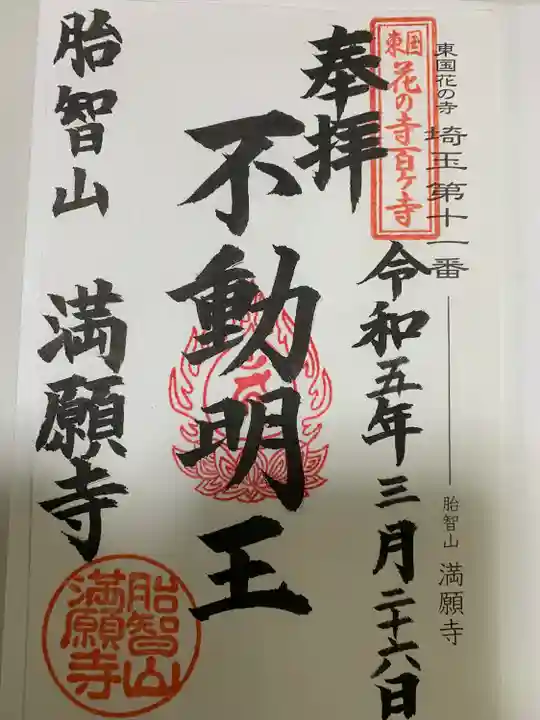 東国花の寺 埼玉第十一番
胎智山 満願寺
東国
花の寺百ヶ寺
奉拝
令和五年三月二十六日
不動明王
胎智山 満願寺
胎智山
満願寺